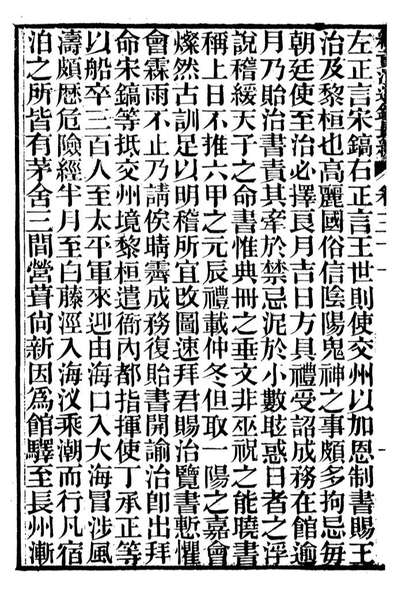 左正言宋鎬右正言王世則使交州以加恩制書賜王
治及黎桓也高麗國俗信陰陽鬼神之事頗多拘忌每
朝廷使至治必擇良月吉日方具禮受詔成務在館逾
月乃貽治書責其牽於禁忌泥於小數眩惑日者之浮
說稽緩天子之命書惟典冊之垂文非巫祝之能曉書
稱上日不推六甲之元辰禮載仲冬但取一陽之嘉會
燦然古訓足以明稽所宜改圖速拜君賜治覽書慙懼
會霖雨不止乃請俟晴霽成務復貽書開諭治卽出拜
命宋鎬等抵交州境黎桓遣衙內都指揮使丁承正等
以船卒三百人至太平軍來迎由海口入大海冒涉風
濤頗歷危險經半月至白藤涇入海汊乘潮而行凡宿
泊之所皆有茅舍三間營葺尚新因爲館驛至長州漸